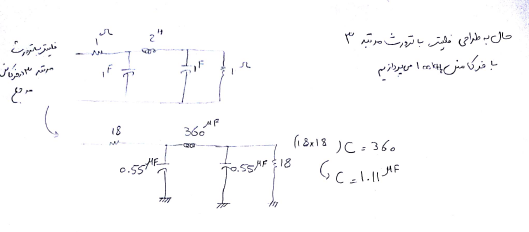 حال به طراحی فیلتر باترورث مرتبه ۳
با فرکانس 1 MHz می‌پردازیم
فیلتر باترورث
مرتبه ۳ در فرکانس
مرجع
1Ω
2H
1F
1F
1Ω
18
360 µF
0.55 µF
0.55 µF
18
(18×18)C = 360
C = 1.11 µF